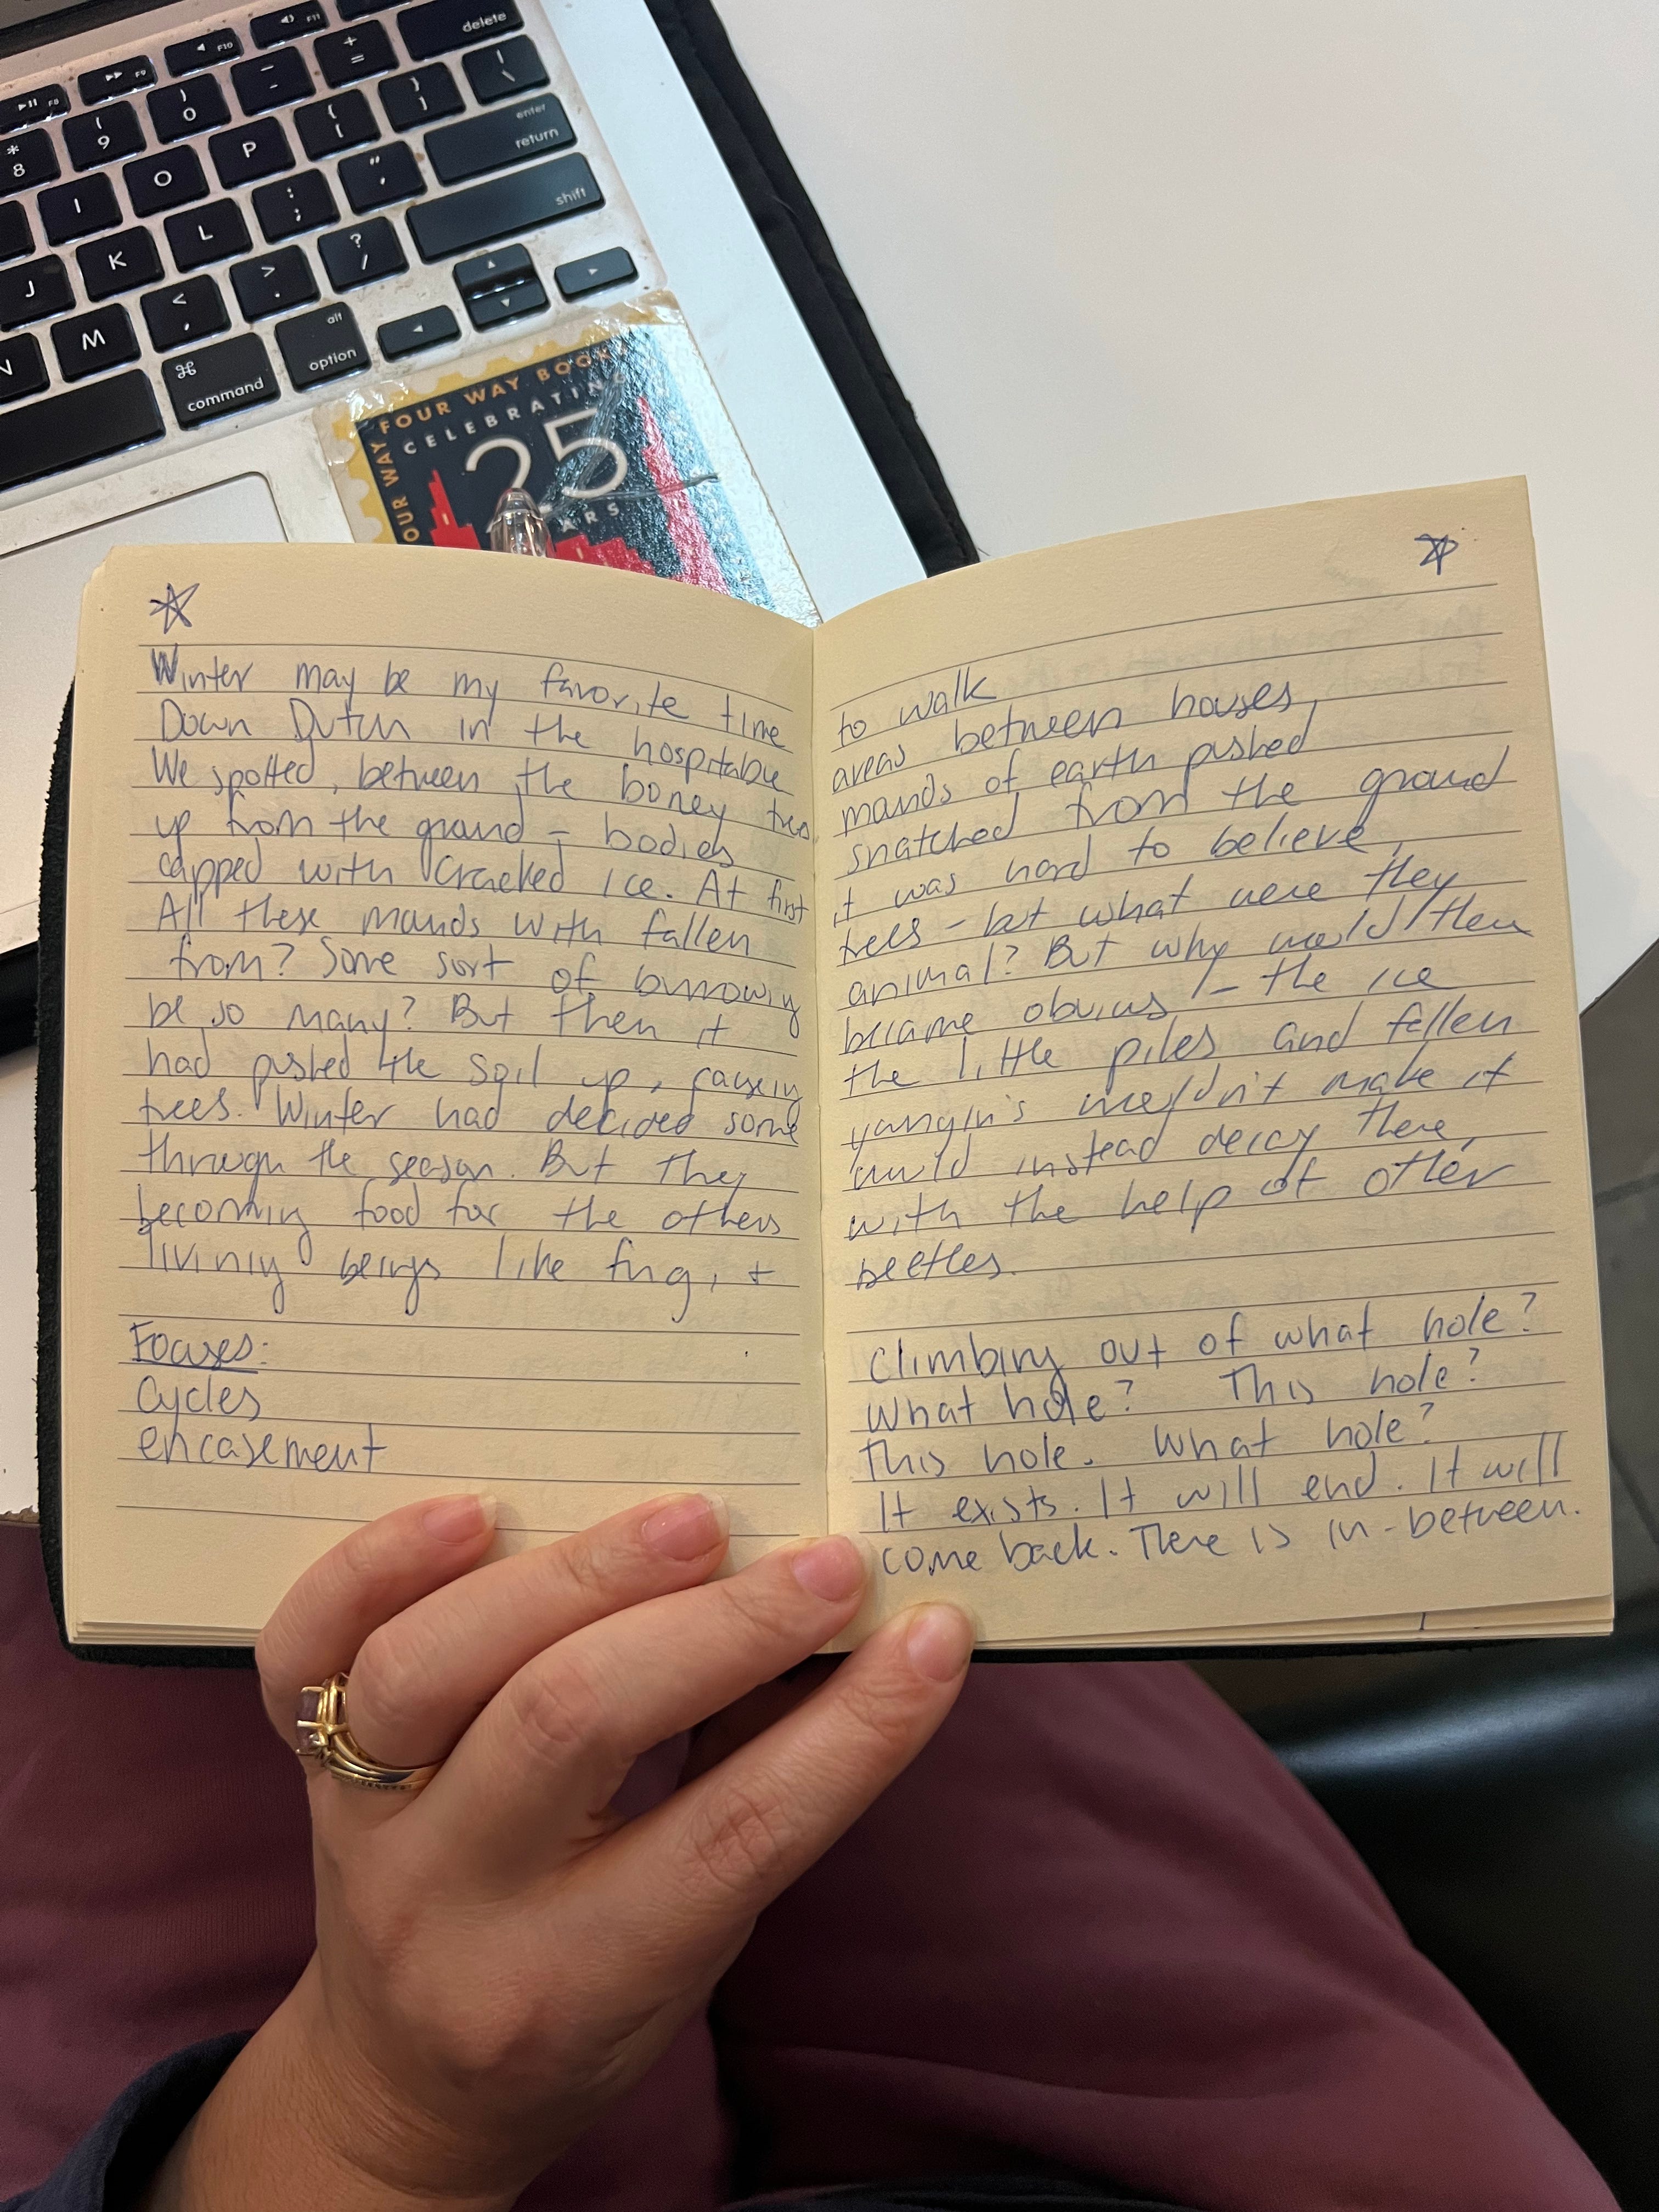 delete
F11
F10
F9
F8
+ =
- _
) 0
( 9
* 8
| \
} ]
{ [
P
O
I
enter return
" '
: ;
L
K
J
shift
? /
> .
< ,
M
N
alt option
⌘ command
FOUR WAY BOOKS
CELEBRATING
25
OUR WAY
ARS
Winter may be my favorite time to walk
Down Dutch in the hospitable areas between houses,
We spotted, between the boney trees mounds of earth pushed
up from the ground - bodies snatched from the ground
capped with cracked ice. At first it was hard to believe,
All these mounds with fallen trees - but what were they
from? Some sort of burrowing animal? But why would there
be so many? But then it became obvious - the ice
had pushed the soil up, causing the little piles and fallen
trees. Winter had decided some youngin's wouldn't make it
through the season. But they would instead decay there,
becoming food for the others with the help of other
living beings like fungi + beetles.
Focuses:
Cycles
encasement
Climbing out of what hole?
What hole? This hole?
This hole. What hole?
It exists. It will end. It will
come back. There is in-between.